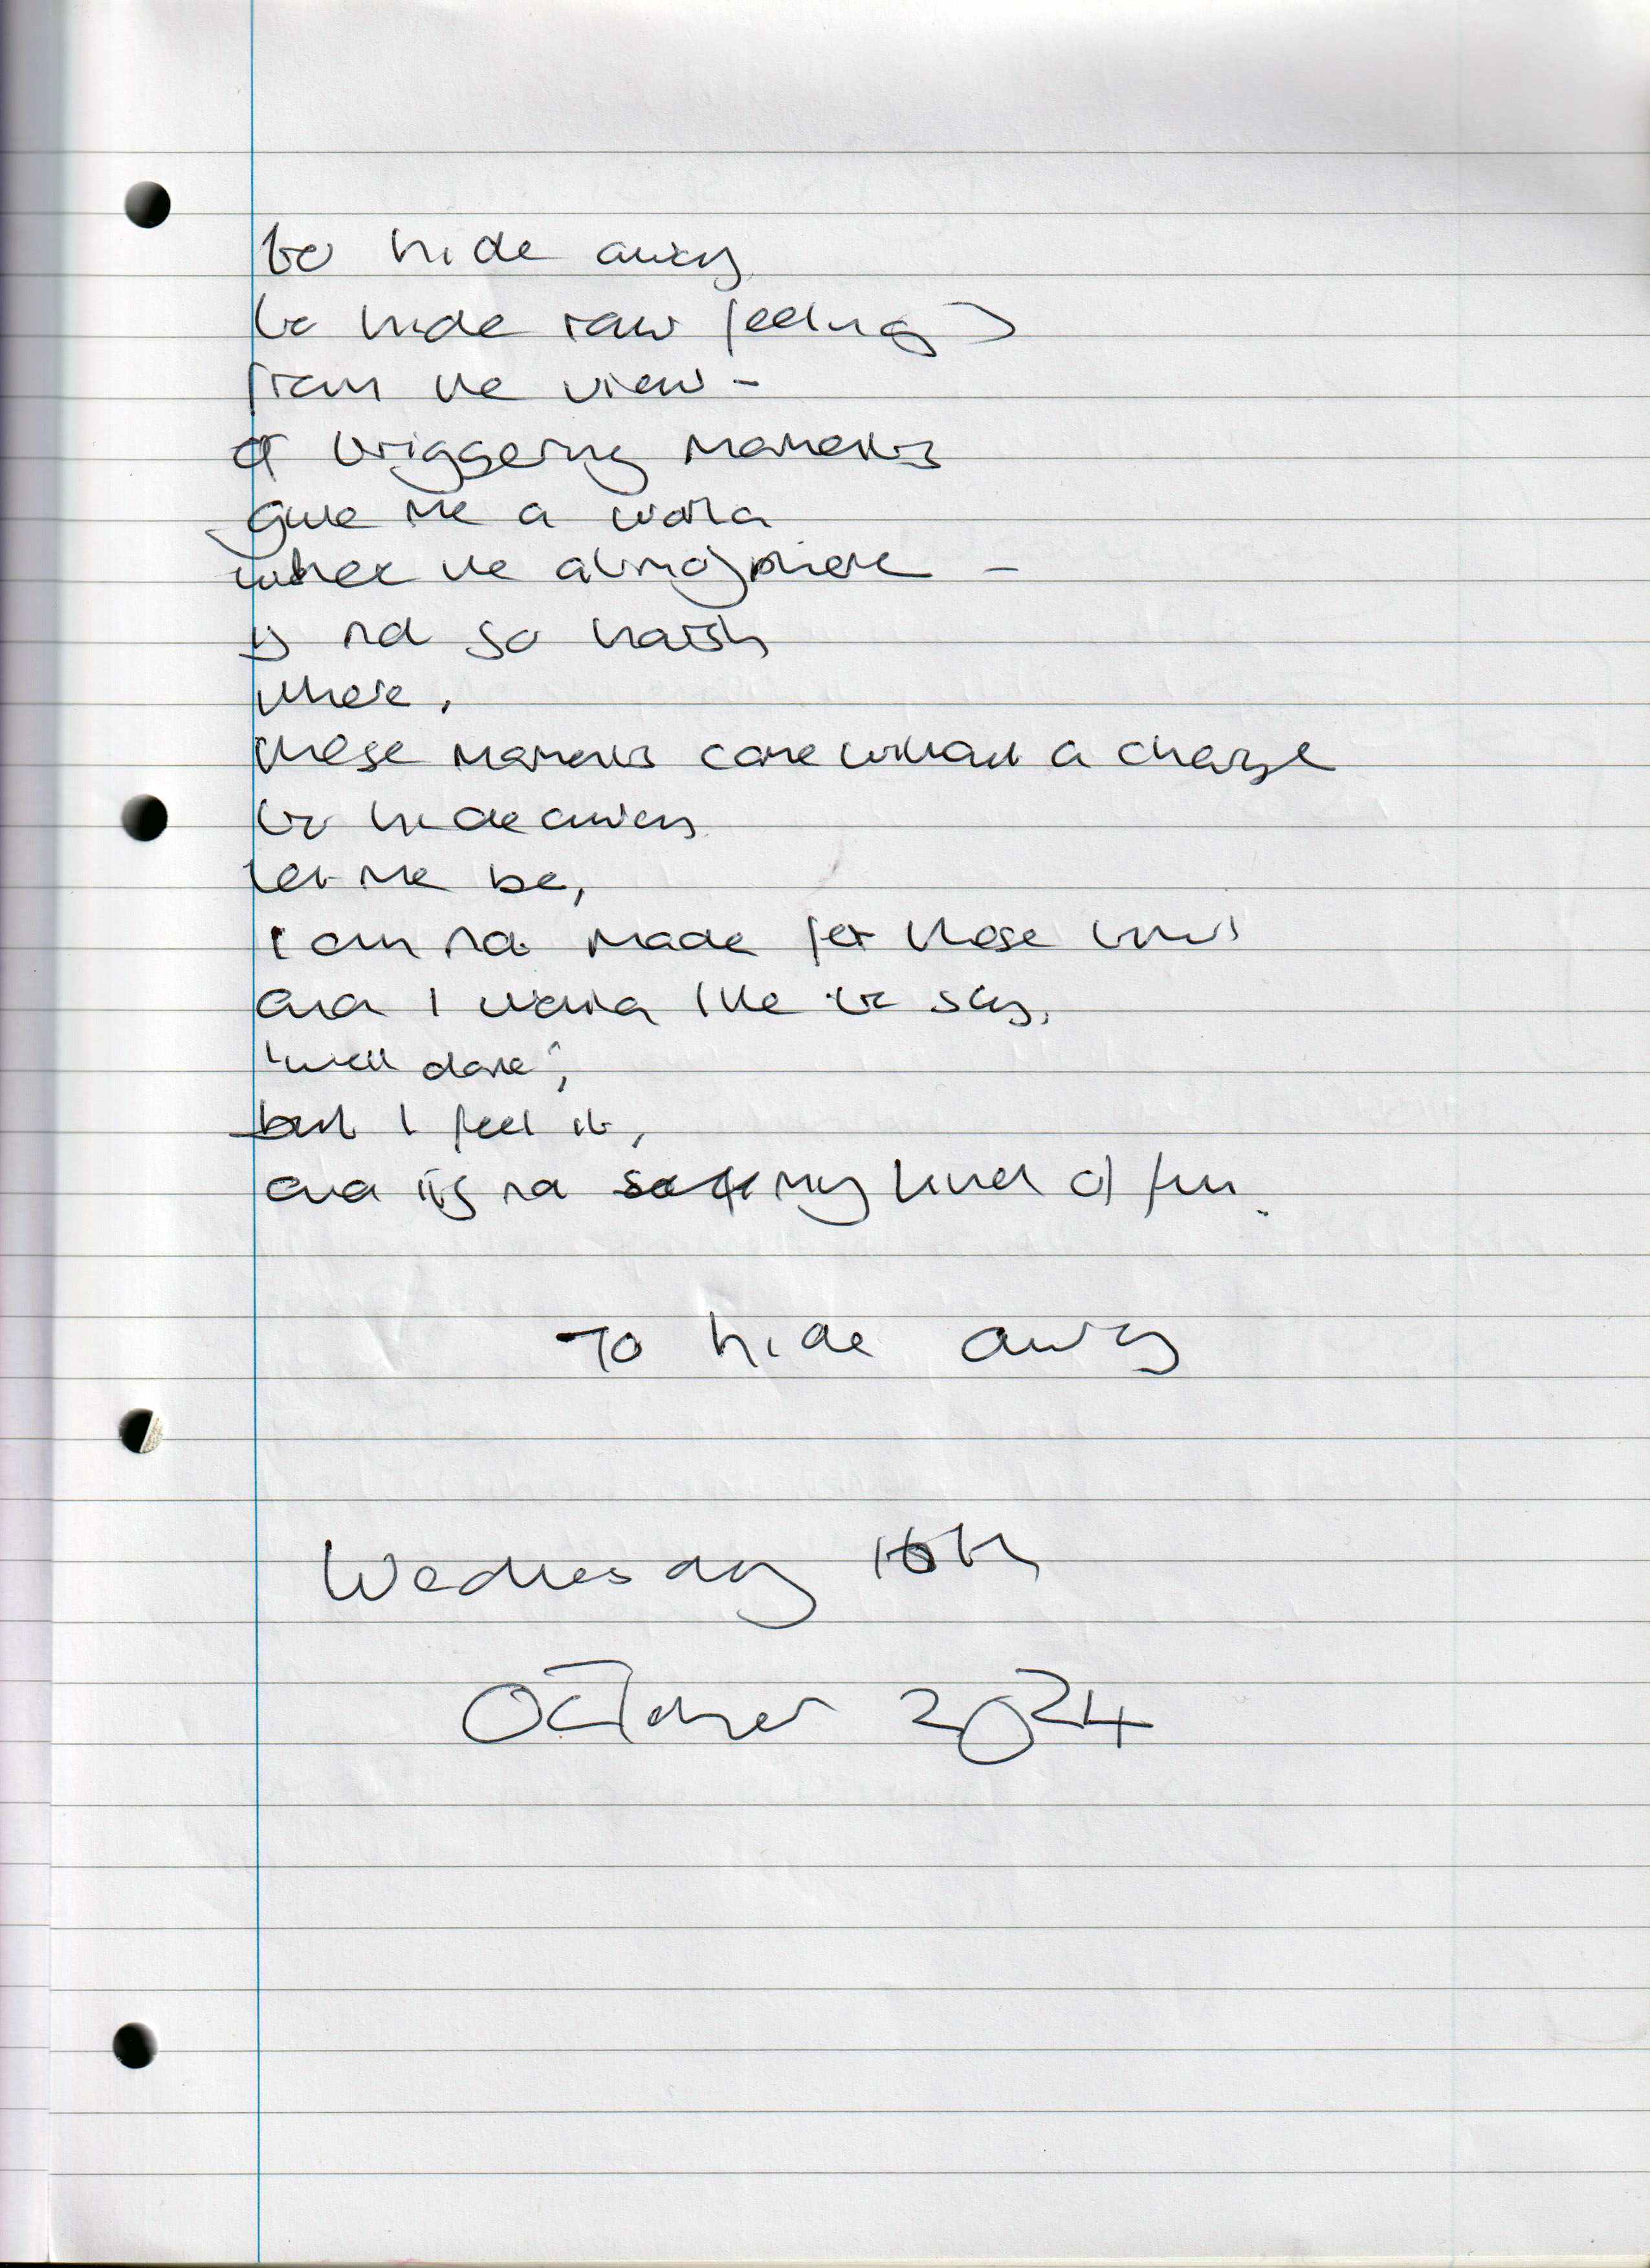 to hide away
to hide raw feelings
from the view -
of triggering moments
give me a world
where the atmosphere -
is not so harsh
where,
these moments come without a charge
to hide away
let me be,
I am not made for those
and I would like to say,
'well done',
but I feel it,
and it's not my kind of fun.
To hide away
Wednesday 16th
October 2024